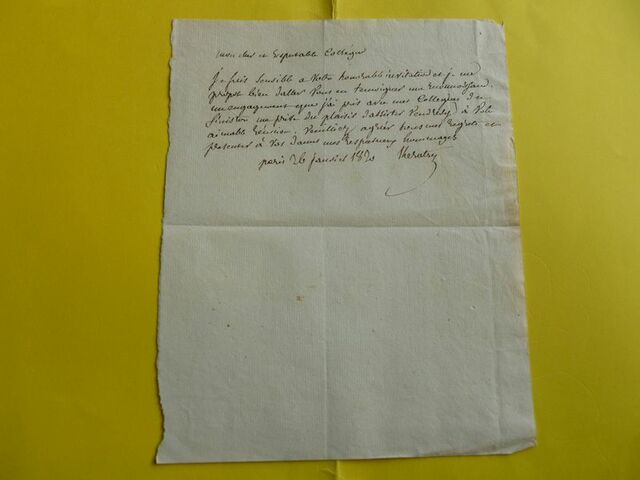 mon cher et respectable Collegue
je suis sensible a votre honorable invitation et je me
propose bien d'aller vous en temoigner ma reconnoissance.
un engagement que j'ai pris avec mes Collegues du
finistere me prive du plaisir d'assister vendredy à votre
aimable reunion. veuillez agréer tous mes regrets et
presenter à vos dames mes respectueux hommages
paris 26 janvier 1820 Kératry